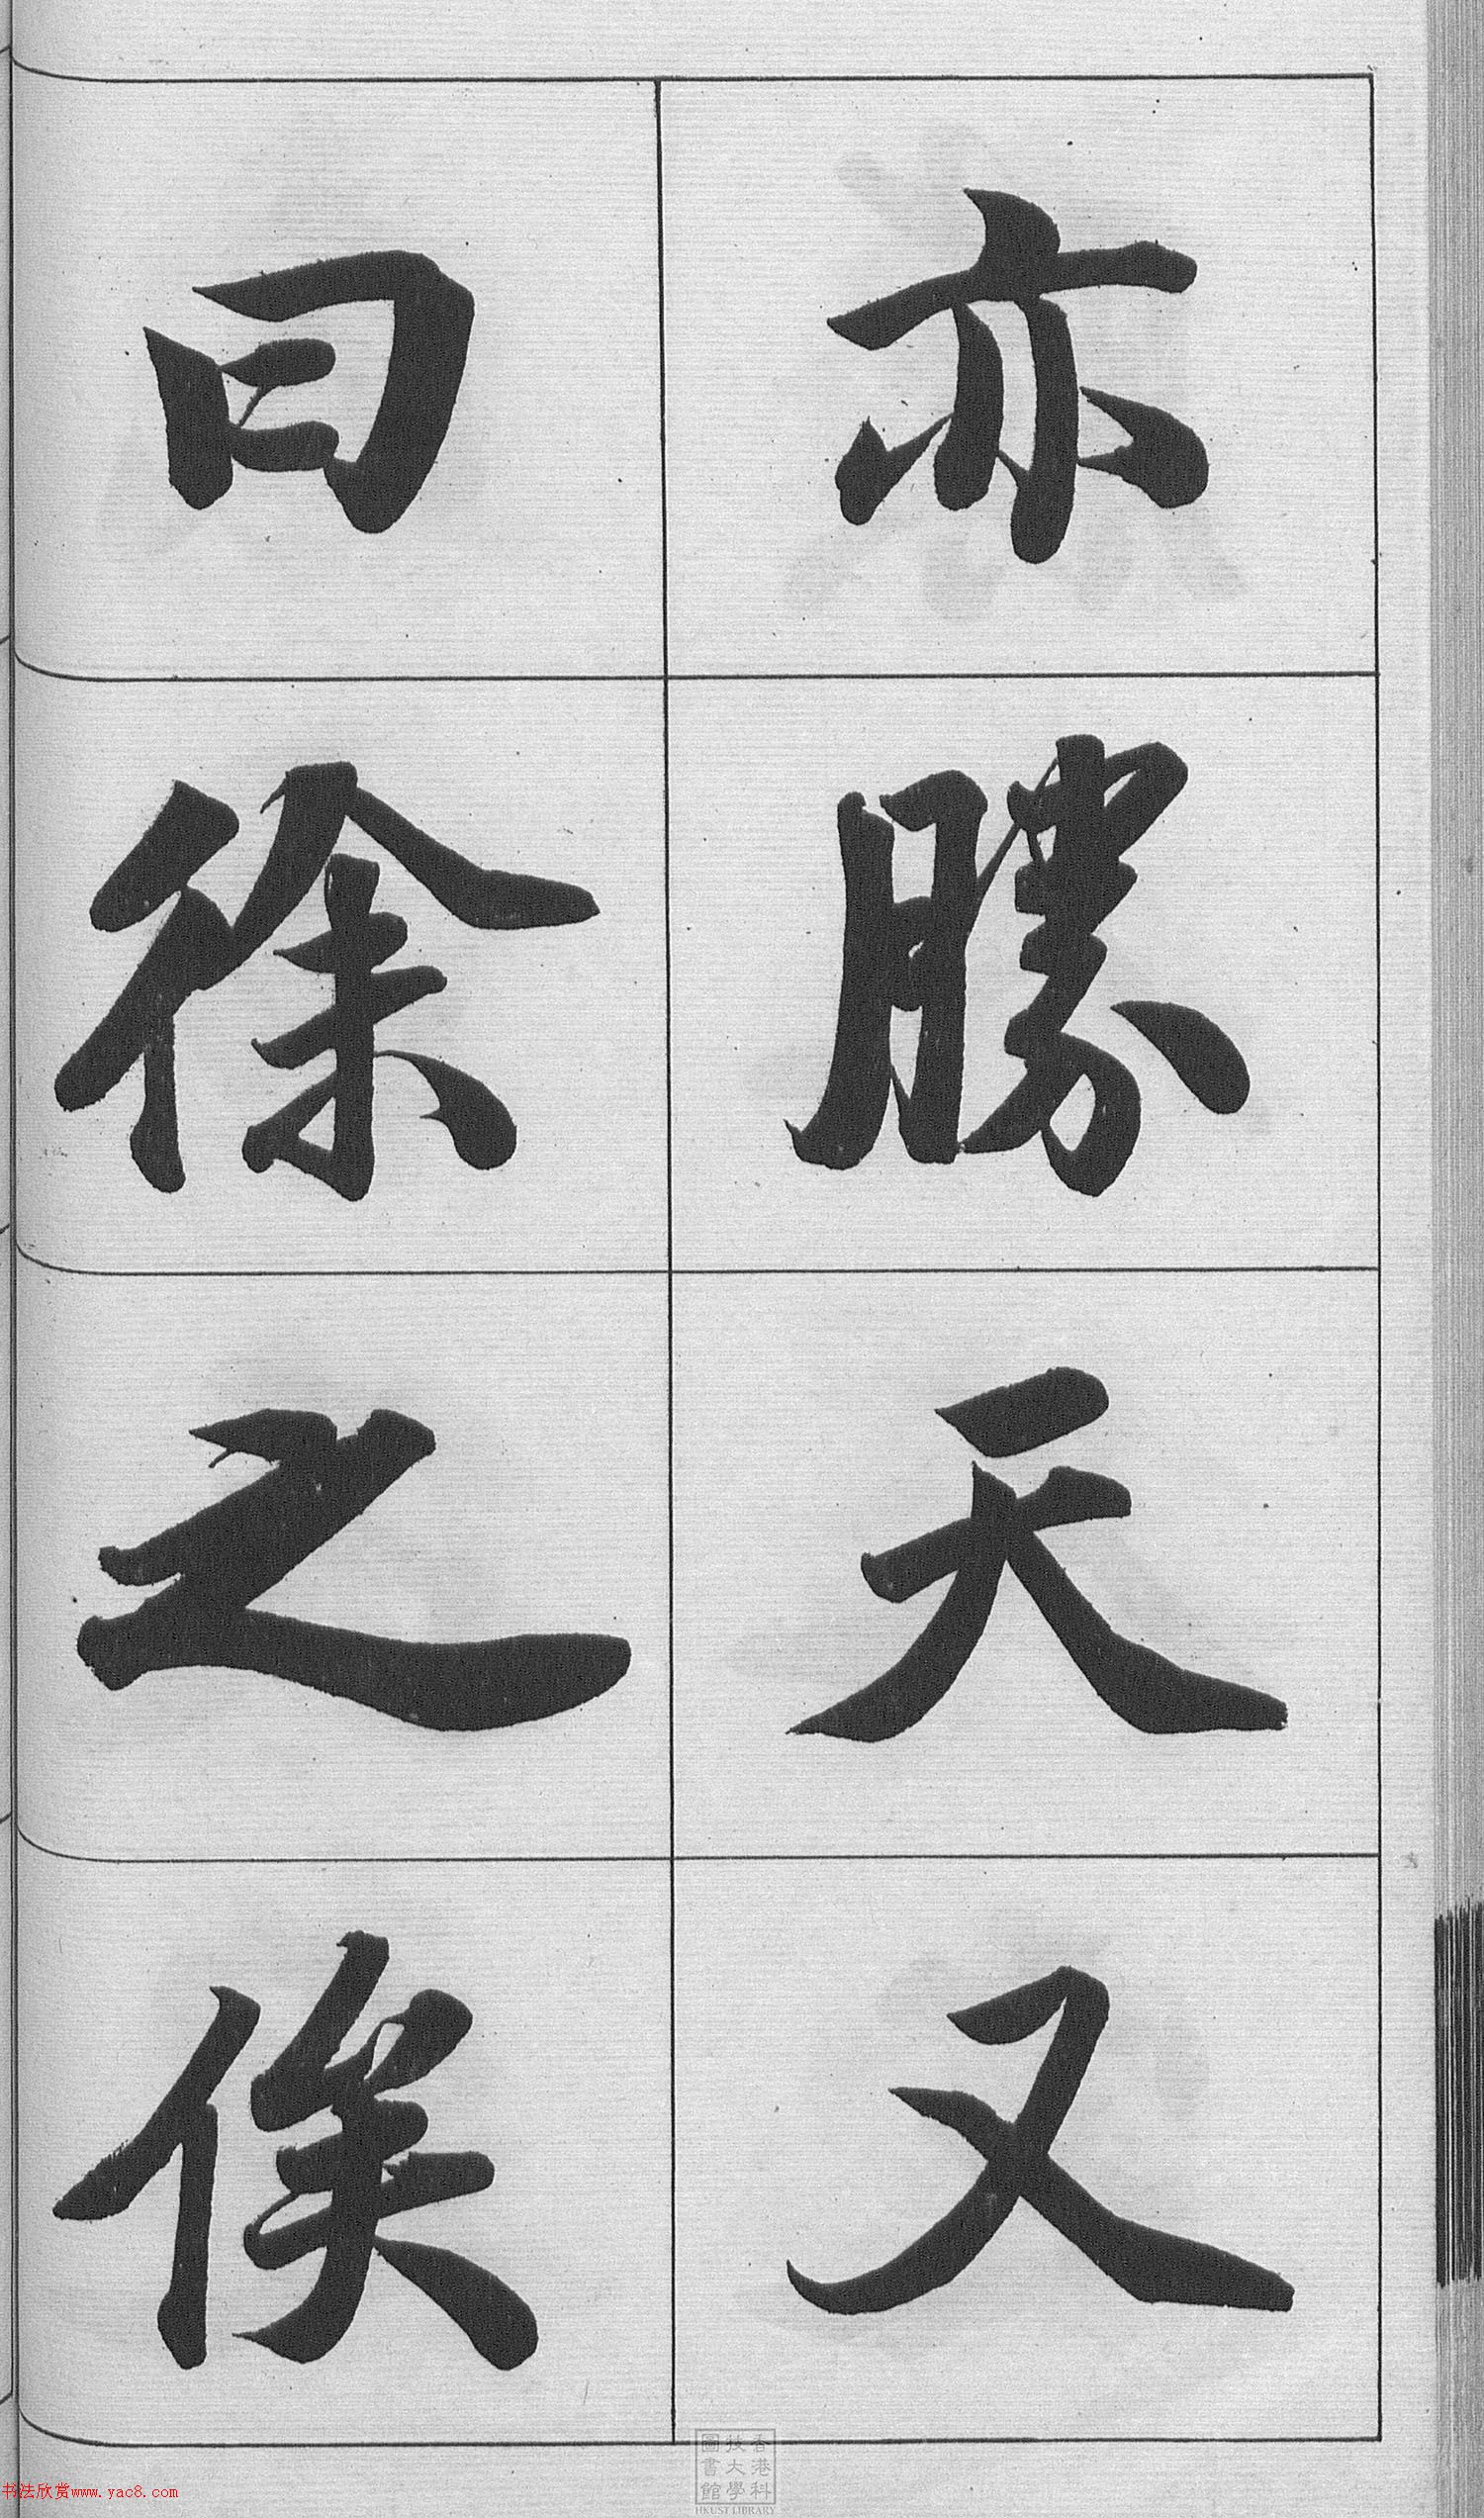 亦勝天又
曰徐之俟
香港科
技大學
圖書館
HKUST LIBRARY
书法欣赏www.yac8.com